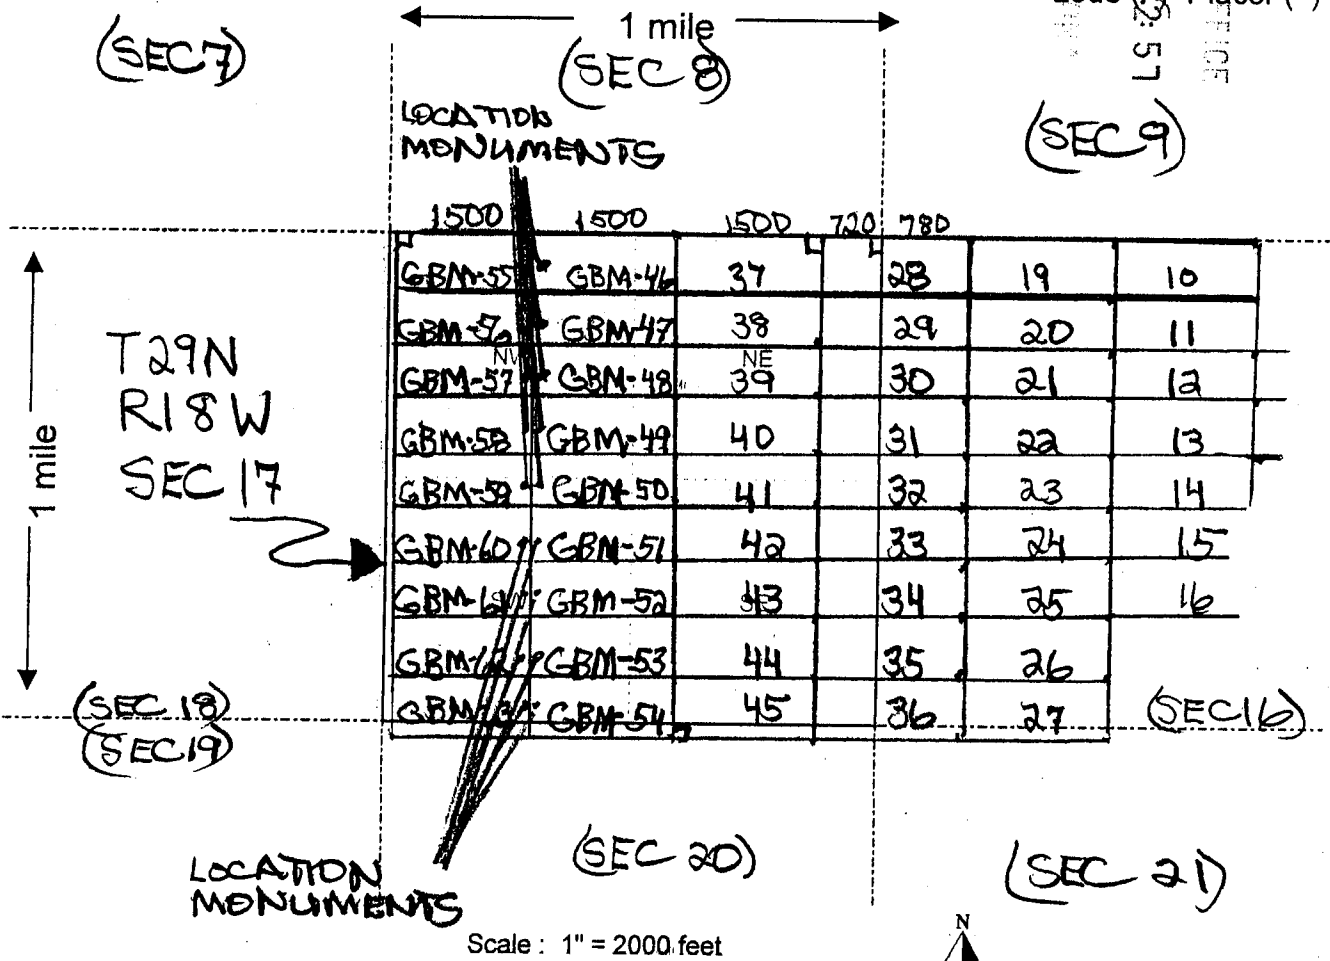 1 mile
(SEC 7)
(SEC 8)
2: 57
(SEC 9)
LOCATION
MONUMENTS
1500 1500 1500 720 780
GBM-55 GBM-46 37 28 19 10
GBM-56 GBM-47 38 29 20 11
NE
GBM-57 GBM-48 39 30 21 12
GBM-58 GBM-49 40 31 22 13
GBM-59 GBM-50 41 32 23 14
GBM-60 GBM-51 42 33 24 15
GBM-61 GBM-52 43 34 25 16
GBM-62 GBM-53 44 35 26
GBM- GBM-54 45 36 27
T29N
R18W
SEC 17
1 mile
(SEC 18)
(SEC 19)
(SEC 16)
(SEC 20)
(SEC 21)
LOCATION
MONUMENTS
Scale : 1" = 2000 feet
N